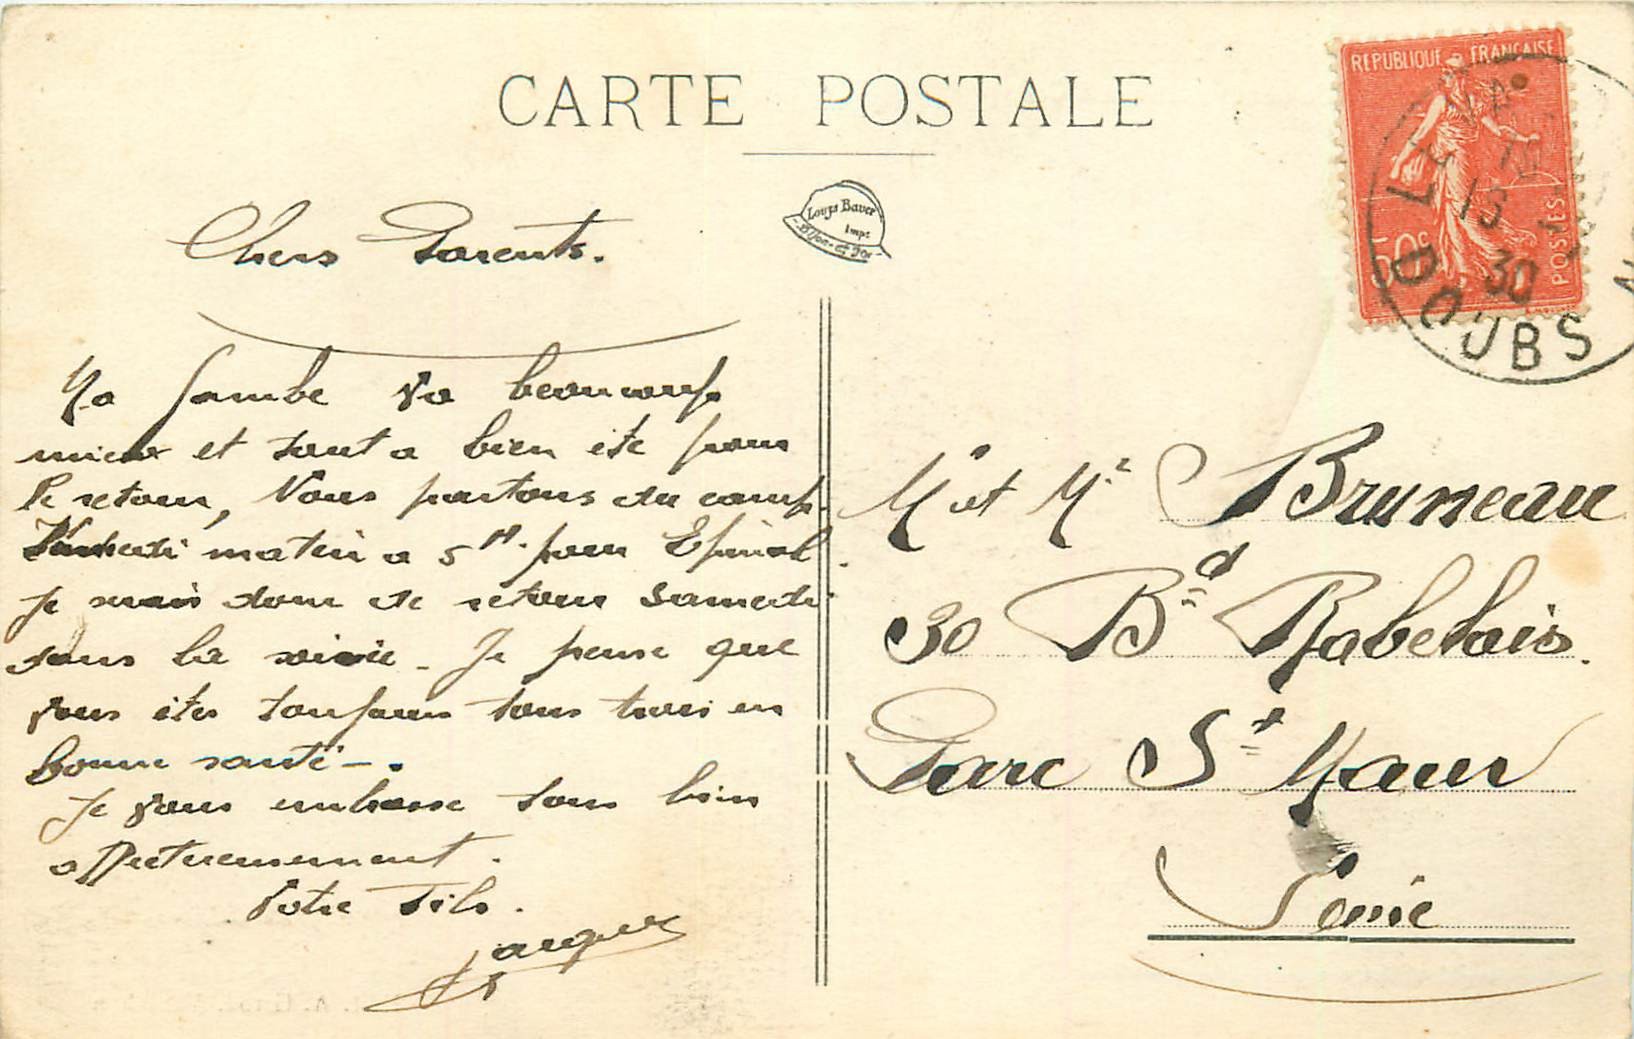 CARTE POSTALE
Louys Bauer
Impr
Dijon-et-Dor
REPUBLIQUE FRANÇAISE
POSTES
50c
13
30
DOUBS
Chers Parents.
Ma Jambe va beaucoup
mieux et tout a bien été pour
le retour, Nous partons du camp
Vendredi matin a 5H pour Epinal.
Je serais donc de retour Samedi
dans la soirée. Je pense que
vous êtes toujours tous trois en
bonne santé -.
Je vous embrasse tous bien
affectueusement.
Votre Fils.
Jacques
Mr et Me Bruneau
30 Bd Rabelais.
Parc St Maur
Seine